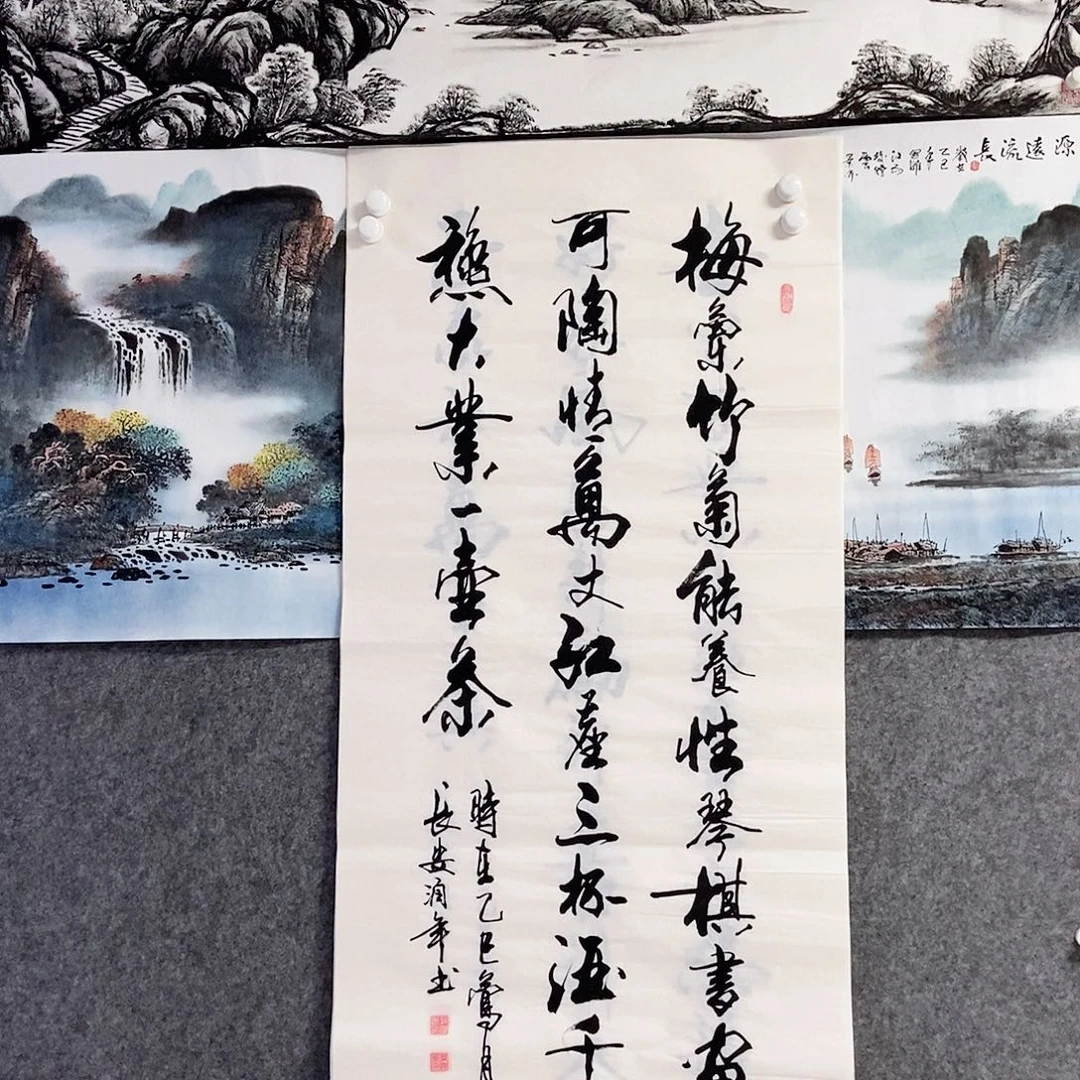 源遠流長
乙巳年
梅蘭竹菊能養性琴棋書畫
可陶情萬丈紅塵三杯酒千
龝大業一壺茶
時在乙巳鶯月
長安润年书